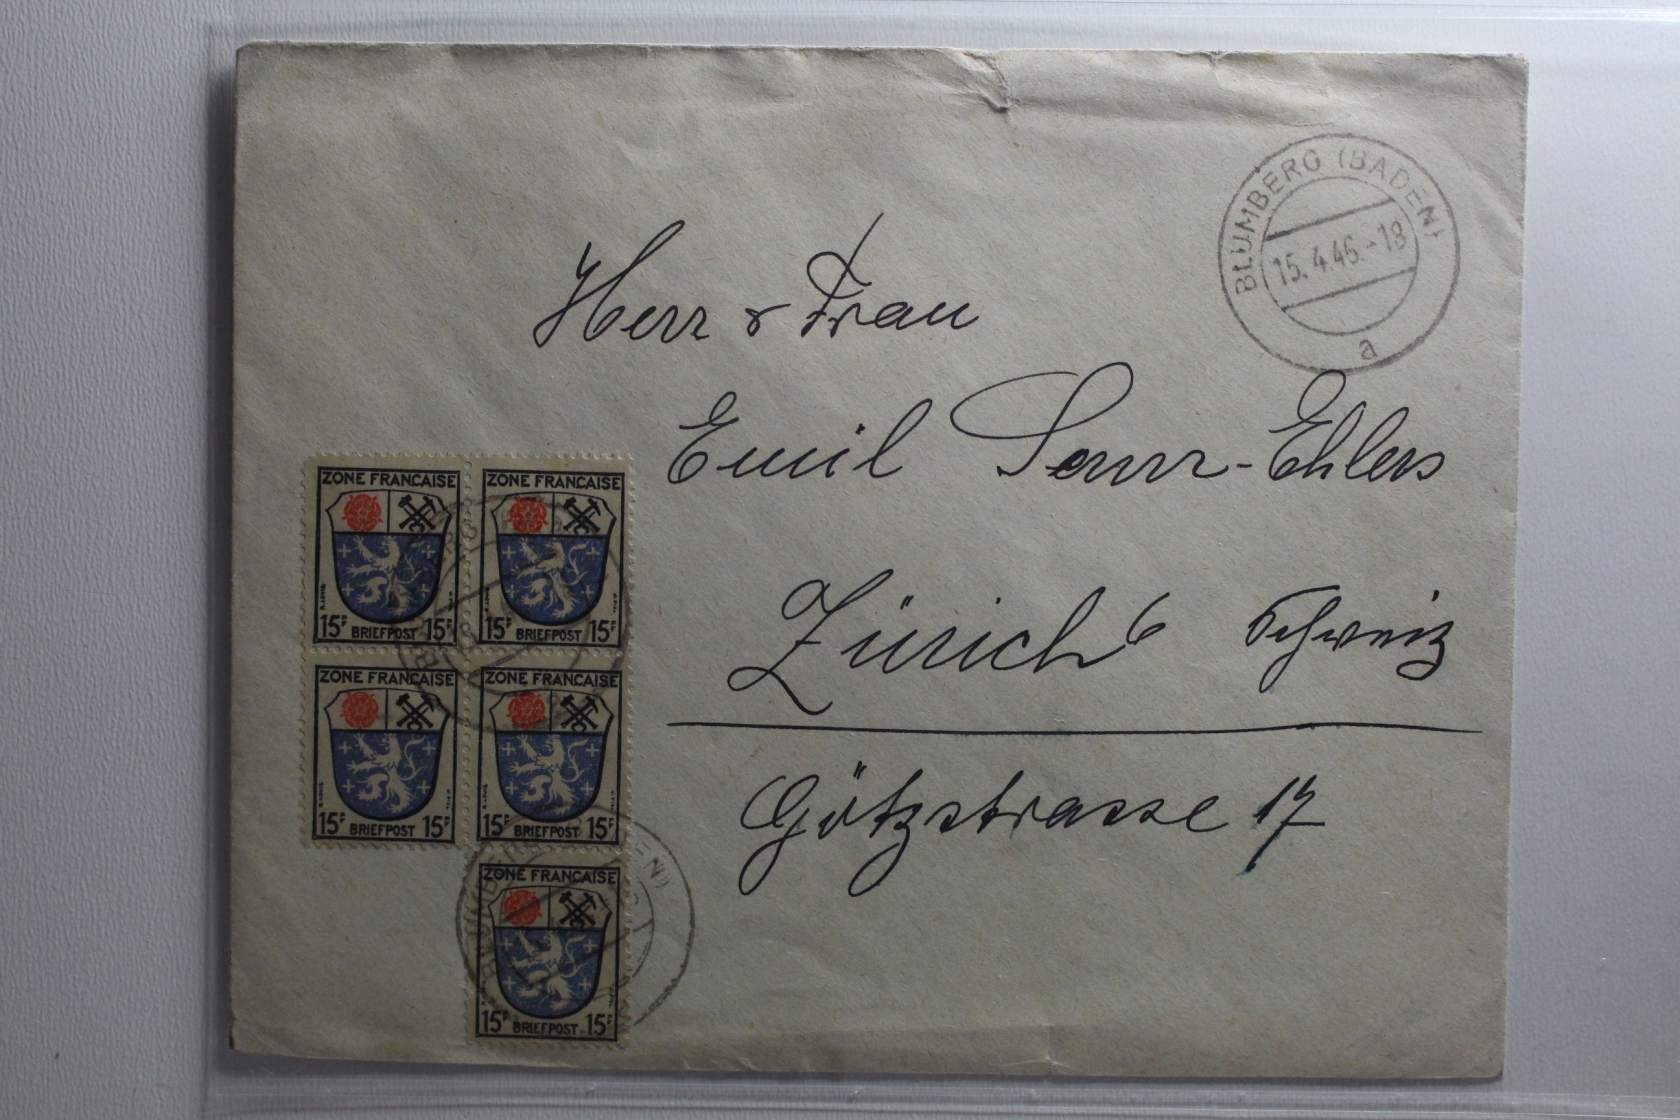 BLUMBERG (BADEN)
15.4.46.-18
a
Herr & Frau
Emil -Ehlers
Zürich 6 Schweiz
Götzstrasse 17
ZONE FRANCAISE
15F BRIEFPOST 15F
ZONE FRANCAISE
15F BRIEFPOST 15F
ZONE FRANCAISE
15F BRIEFPOST 15F
ZONE FRANCAISE
15F BRIEFPOST 15F
ZONE FRANCAISE
15F BRIEFPOST 15F